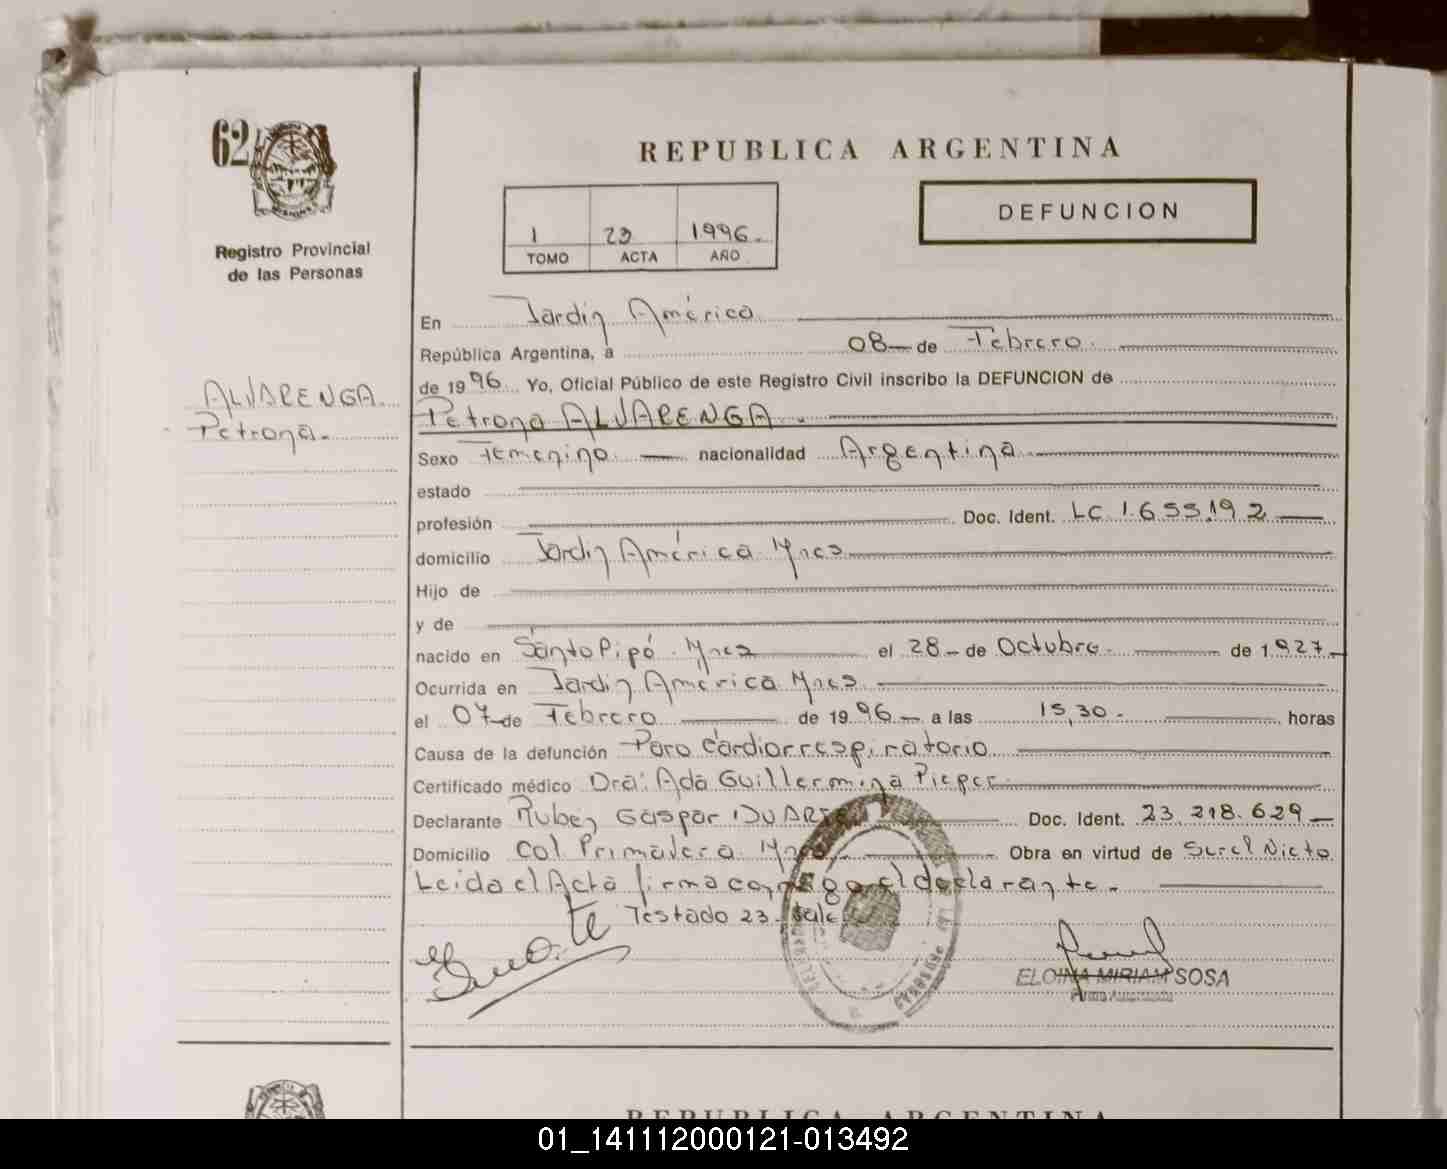 62
REPUBLICA ARGENTINA
DEFUNCION
1 23 1996.
TOMO ACTA AÑO
Registro Provincial
de las Personas
En Jardín América
República Argentina, a 08 de Febrero.
de 1996 Yo, Oficial Público de este Registro Civil inscribo la DEFUNCION de
ALVARENGA
Petrona.
Petrona ALVARENGA.
Sexo Femenino nacionalidad Argentina
estado
profesión Doc. Ident. LC 1.655.192
domicilio Jardín América Mnes
Hijo de
y de
nacido en Santo Pipó. Mnes el 28 de Octubre. de 1.927
Ocurrida en Jardín América Mnes.
el 07 de Febrero de 1996 a las 15,30. horas
Causa de la defunción Paro cardiorrespiratorio
Certificado médico Dra: Ada Guillermina Pieper
Declarante Ruben Gaspar DUARTE Doc. Ident. 23.218.629
Domicilio Col. Primavera Mnes. Obra en virtud de Ser el Nieto
Leída el Acta firma conmigo el declarante.
Testado 23. Vale.
ELOINA MIRIAM SOSA
REPUBLICA ARGENTINA
01_141112000121-013492